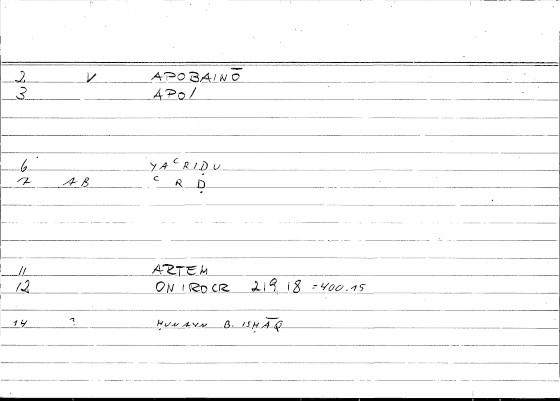 2 V APOBAINŌ
3 APO/
6 YAʿRIḌU
7 AB ʿ R Ḍ
11 ARTEM
12 ONIROCR 219,18 =400.15
14 ? ḤUNAYN B. ISḤĀQ